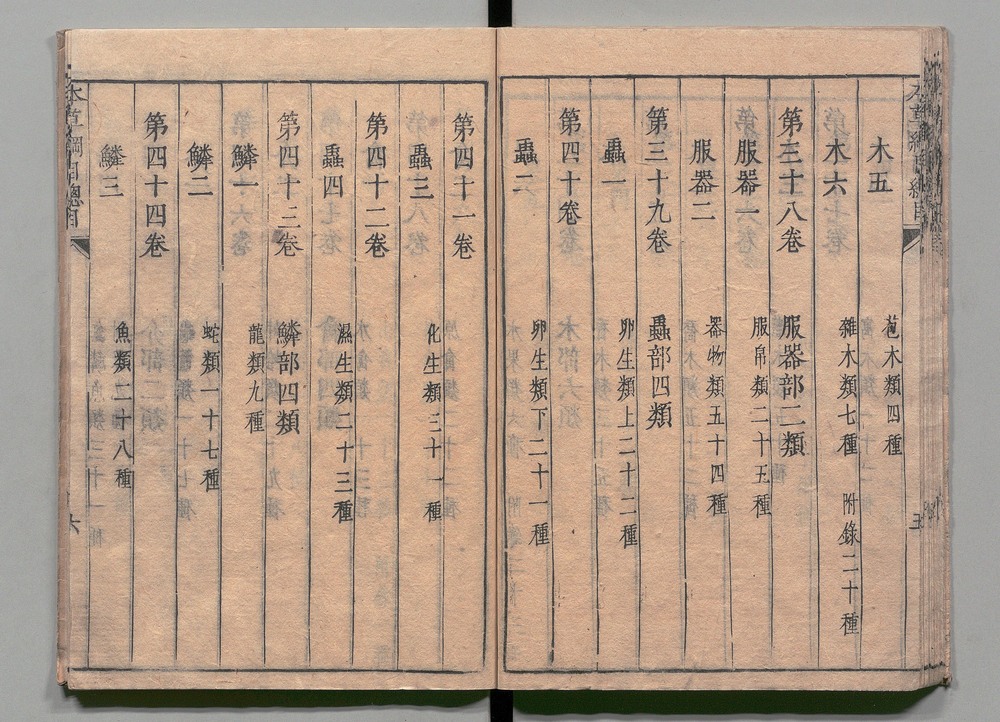 木五　苞木類四種
木六　雜木類七種　附錄二十種
第三十八卷　服器部二類
服器一　服帛類二十五種
服器二　器物類五十四種
第三十九卷　蟲部四類
蟲一　卵生類上二十二種
第四十卷
蟲二　卵生類下二十一種
第四十一卷
蟲三　化生類三十一種
第四十二卷
蟲四　濕生類二十三種
第四十三卷　鱗部四類
鱗一　龍類九種
鱗二　蛇類一十七種
第四十四卷
鱗三　魚類二十八種
本草綱目總目　六